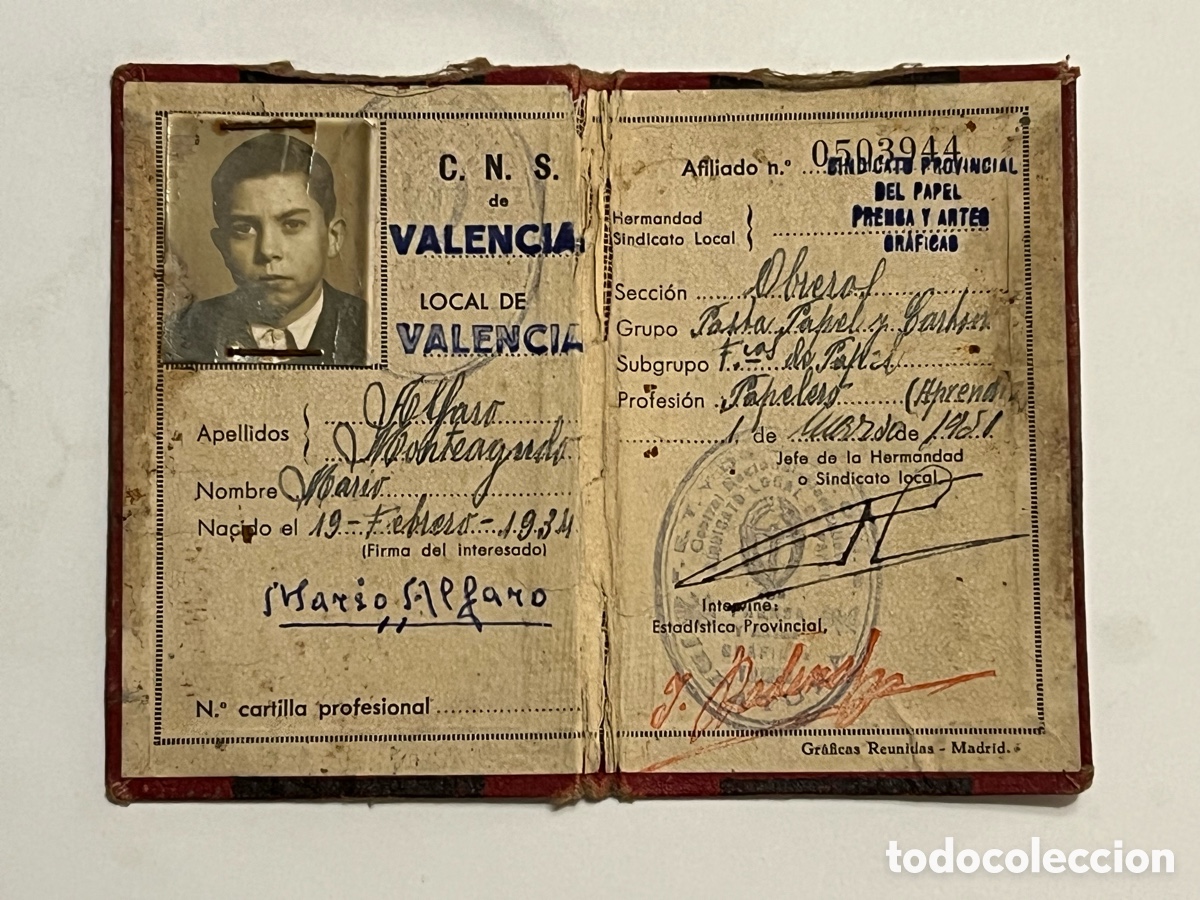 C. N. S.
de
VALENCIA
LOCAL DE
VALENCIA
Apellidos Alfaro
Monteagudo
Nombre Mario
Nacido el 19 - Febrero - 1934
(Firma del interesado)
Mario Alfaro
N.º cartilla profesional
Afiliado n.º 0503944
SINDICATO PROVINCIAL
DEL PAPEL
PRENSA Y ARTES
GRÁFICAS
Hermandad
Sindicato Local
Sección Obrera
Grupo Pasta Papel y Cartón
Subgrupo F.cas de Papel
Profesión Papelero (Aprendiz
1 de Marzo de 1951
Jefe de la Hermandad
o Sindicato local,
SINDICATO LOCAL
Interviene:
Estadística Provincial,
Gráficas Reunidas - Madrid.
todocoleccion